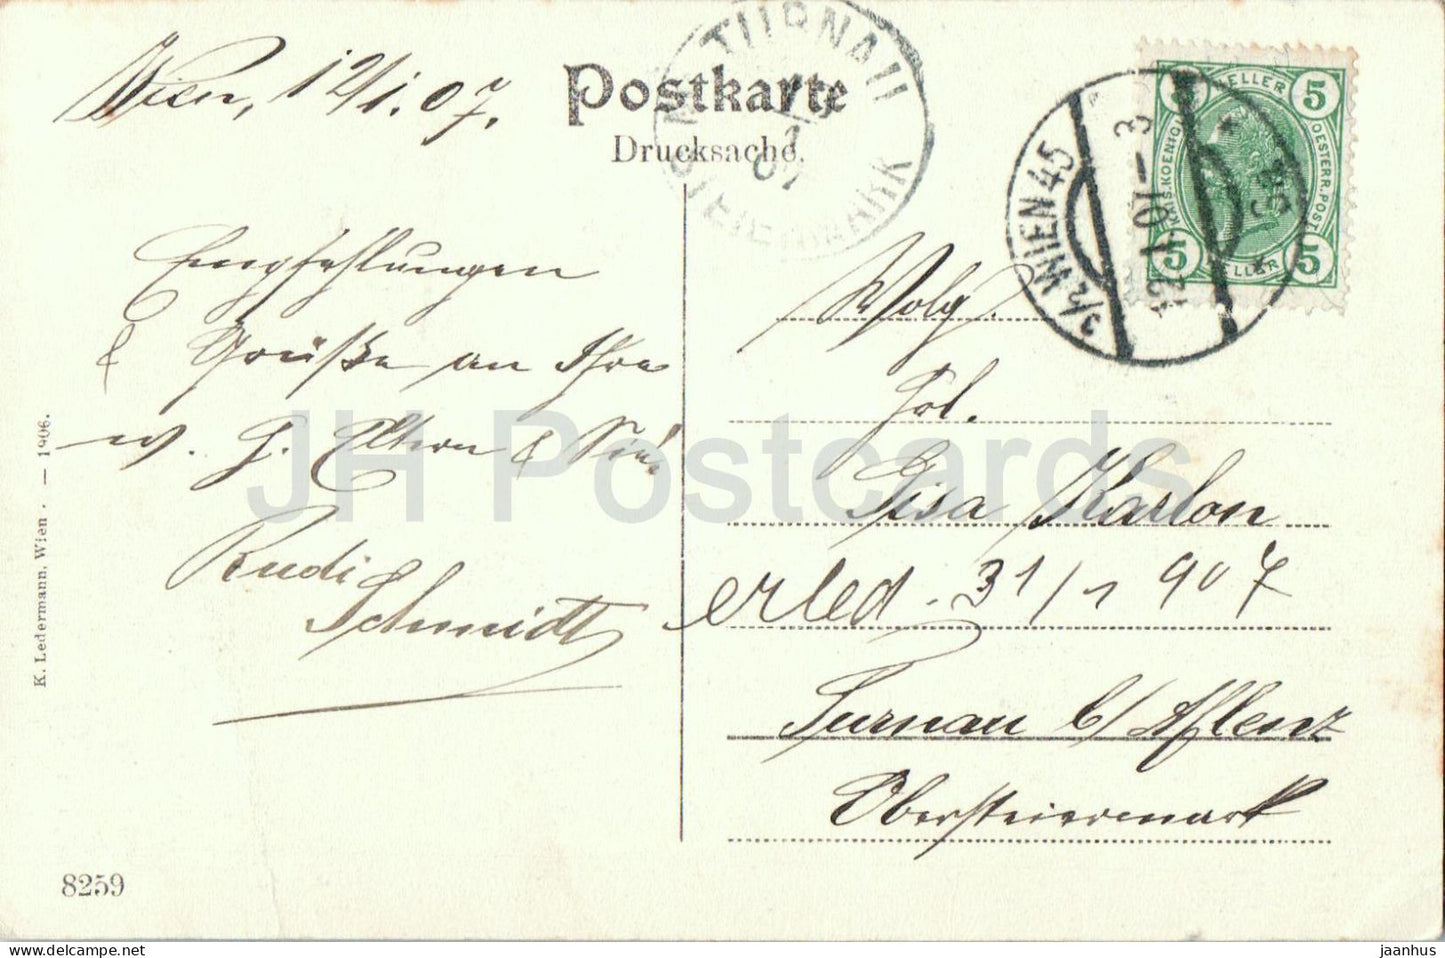 Wien, 12/1.07.
Postkarte
Drucksache.
TURNAU
STEIERMARK
07
3/2 WIEN 45
12.I.07-3
5 HELLER 5
KAIS.KOENIGL. OESTERR.POST
5 HELLER 5
Empfehlungen
& Grüße an Ihre
w. H. Eltern & Sie.
Rudi
Schmidt
Wolg.
Frl.
Gisa Karlon
erled. 31/1 907
Turnau b/ Aflenz
Obersteiermark
K. Ledermann, Wien. — 1906.
8259
JH Postcards
www.delcampe.net
jaanhus